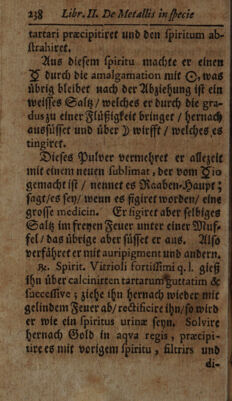 238 Libr. II. De Metallis in specie
tartari præcipitiret und den spiritum ab-
strahiret.
Aus diesem spiritu machte er einen
☿ durch die amalgamation mit ☉, was
übrig bleibet nach der Abziehung ist ein
weisses Saltz / welches er durch die gra-
dus zu einer Flüßigkeit bringet / hernach
aussüsset und über ☽ wirfft / welches es
tingiret.
Dieses Pulver vermehret er allezeit
mit einem neuen sublimat, der vom ☿io
gemacht ist / nennet es Raaben-Haupt;
sagt / es sey / wenn es figiret worden / eine
grosse medicin. Er figiret aber selbiges
Saltz im freyen Feuer unter einer Muf-
fel / das übrige aber süsset er aus. Also
verfähret er mit auripigment und andern.
℞. Spirit. Vitrioli fortissimi q. l. gieß
ihn über calcinirten tartarum guttatim &
successive; ziehe ihn hernach wieder mit
gelindem Feuer ab / rectificire ihn / so wird
er wie ein spiritus urinæ seyn. Solvire
hernach Gold in aqva regis, præcipi-
tire es mit vorigem spiritu, filtrirs und
di-